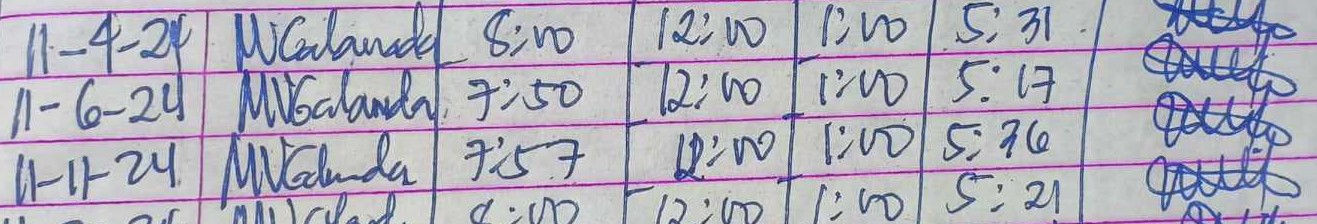 11-4-24 MVGalanda 8:00 12:00 1:00 5:31
11-6-24 MVGalanda 7:50 12:00 1:00 5:17
11-11-24 MVGalanda 7:57 12:00 1:00 5:36
8:00 12:00 1:00 5:21